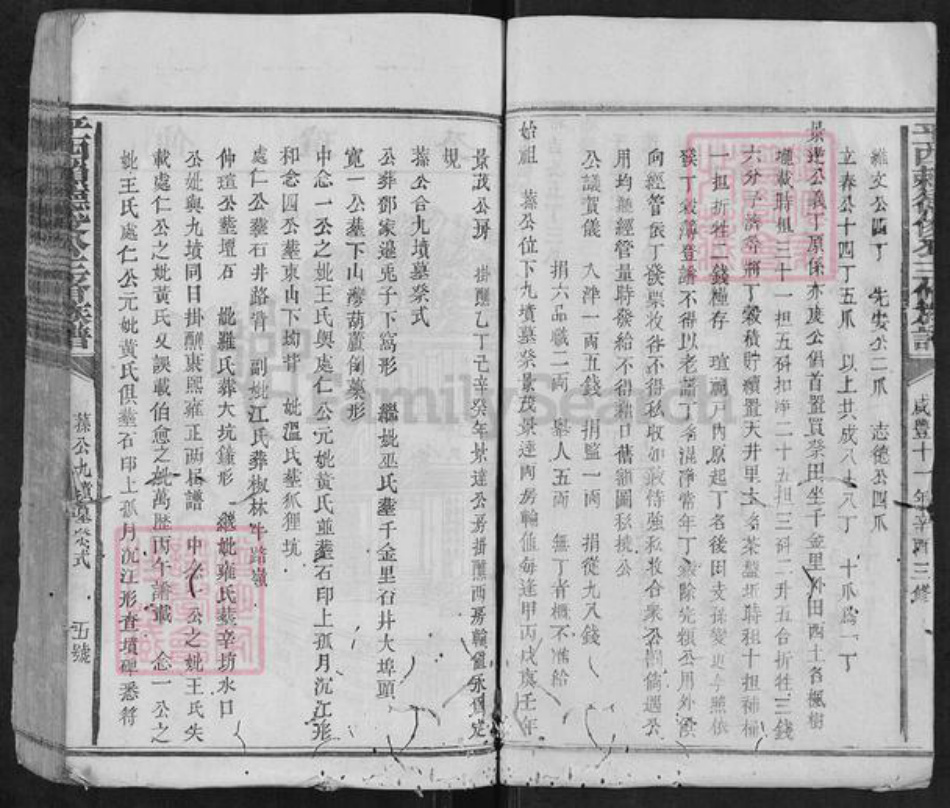 咸豐十一年辛酉三修
維文公四丁 先安公二爪 志德公四爪
立春公十四丁五爪 以上共成八十八丁 十爪為一丁
景達公義丁原係亦茂公倡首置買祭田坐千金里外田西土名楓樹
壠載時租三十一担五科扣淨二十五担三科二升五合折牲三錢
六分子濟 將丁穀積貯續置天井里土名茶盤圻時租十担補桶
一担折牲二錢 存 瑄祠戸內原起丁名後因支孫 照依
發丁穀 登譜不得以老譜丁名混淨常年丁穀除完糧公用外 
向經管依丁發票收谷不得私收如敢恃強私收合衆公 倘遇公
用均 經管量時發給不得 口借領圖私撓公
公議賀儀 入泮一両五錢 捐監一両 捐從九八錢
捐六品職二両 舉人五両 無丁者概不准給
始祖 蓀公位下九墳墓祭景茂景達両房輪值每逢甲丙戊庚壬年
景茂公房 掛醮乙丁己辛癸年景達公房掛醮両房輪值永為定
規
蓀公合九墳墓祭式
公葬鄧家邊兎子下窩形 繼妣巫氏葬千金里石井大埠頭
寬一公葬下山灣葫蘆倒墓形
中念一公之妣王氏與處仁公元妣黃氏並葬石印上孤月沉江形
和念四公葬東山下坳背 妣溫氏葬狐狸坑
處仁公葬石井路背 副妣江氏葬椒林牛路嶺
仲瑄公葬壇石 妣羅氏葬大坑鐘形 繼妣雍氏葬辛坊水口
公妣與九墳同日掛醮康熙雍正両屆譜 中念一公之妣王氏失
載處仁公之妣黃氏又誤載伯愈之妣萬歷丙午譜載 念一公之
妣王氏處仁公元妣黃氏俱葬石印上孤月沉江形查墳碑悉符
蓀公九墳墓祭式 五號
FamilySearch